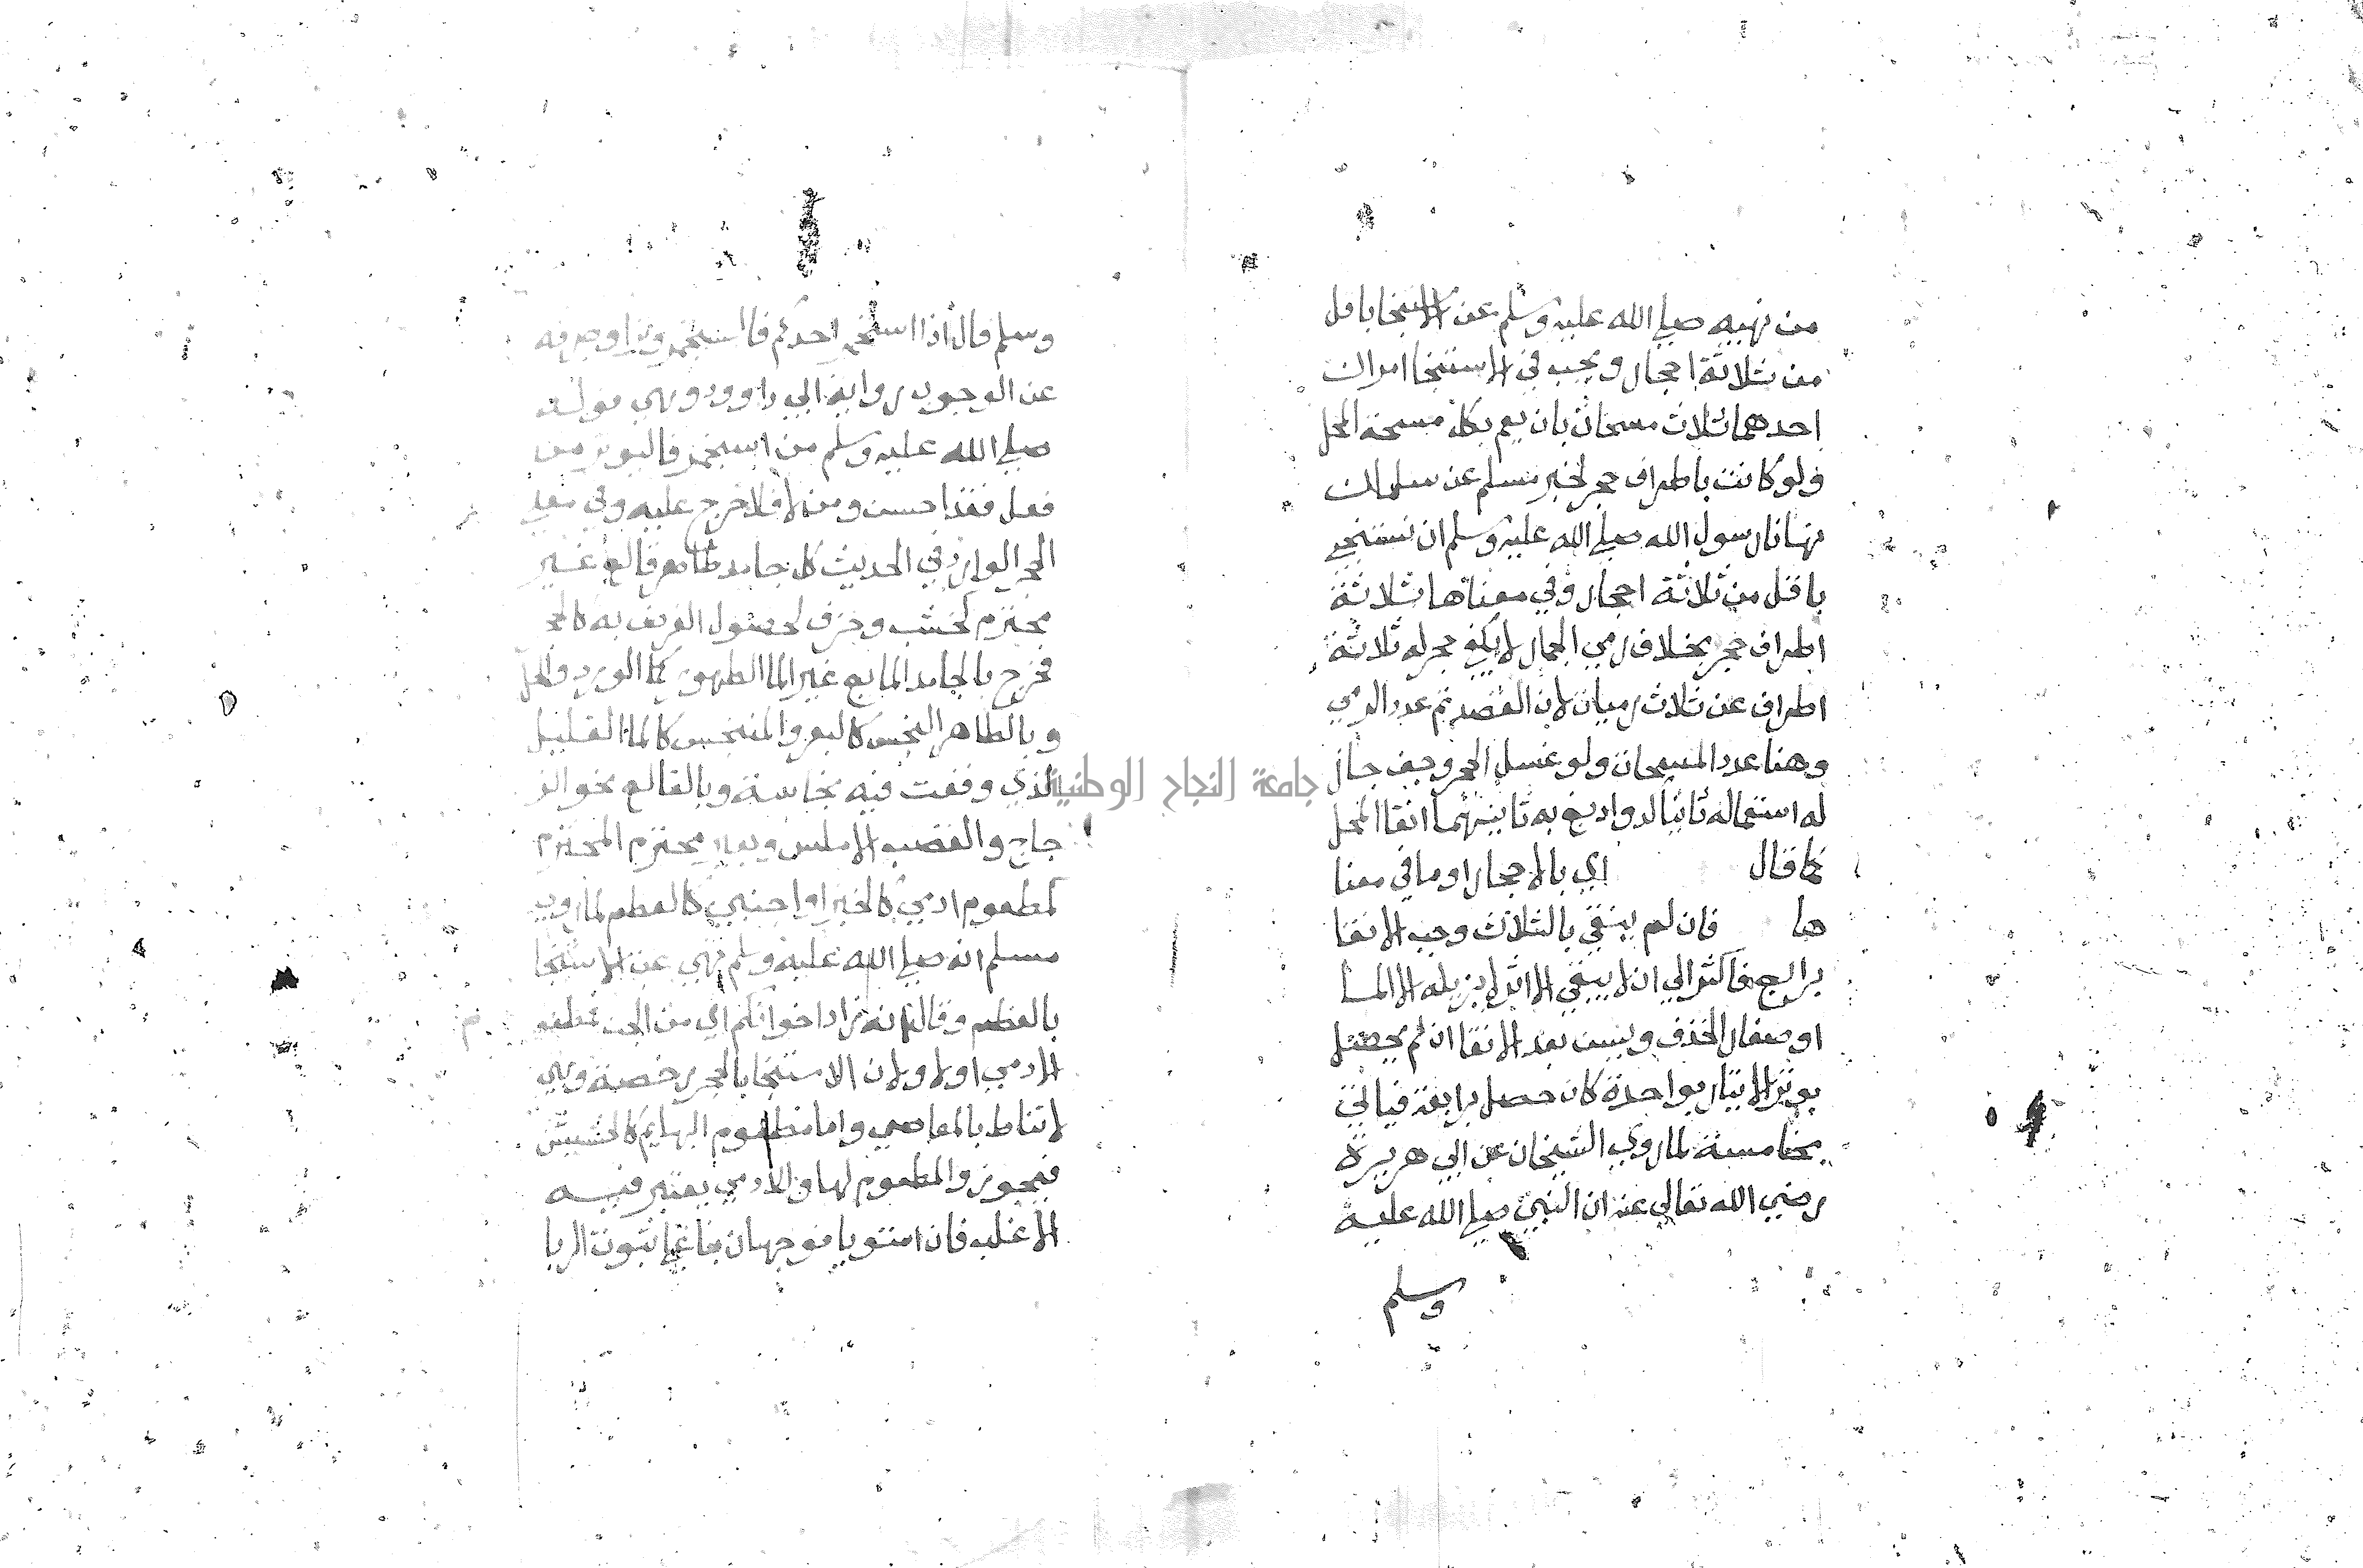 من نهيه صلي الله عليه وسلم عن الاستنجا باقل
من ثلاثة احجار ويجب في الاستنجا امران
احدهما ثلاث مسحات بان يعم بكل مسحة المحل
ولو كانت باطراف حجر لخبر مسلم عن سلمان
نهانا رسول الله صلي الله عليه وسلم ان نستنجي
باقل من ثلاثة احجار وفي معناها ثلاثة
اطراف حجر بخلاف رمي الجمار لا يكفي حجر له ثلاثة
اطراف عن ثلاث رميات لان القصد ثم عدد الرمي
وهنا عدد المسحات ولو غسل الحجر وجف جاز
له استعماله ثانيا كدواء دبغ به ثانيهما انقا المحل
كما قال اي بالاحجار او ما في معنا
ها فان لم ينقي بالثلاث وجب الانقا
برابع فاكثر الي ان لا يبقي الا اثر لا يزيله الا الما
او صغار الخذف ويسن بعد الانقا ان لم يحصل
بوتر الايتار بواحدة كان حصل برابعة فياتي
بخامسة لما روي الشيخان عن ابي هريرة
رضي الله تعالي عنه ان النبي صلي الله عليه
وسلم
وسلم قال اذا استجمر احدكم فاليستجمر وترا وصرفه
عن الوجوب رواية ابي داوود وهي قوله
صلي الله عليه وسلم من استجمر فاليوتر من
فعل فقد احسن ومن لا فلا حرج عليه وفي معني
الحجر الوارد في الحديث كل جامد طاهر قالع غير
محترم كخشب وخزف لحصول الغرض به كالحجر
فخرج بالجامد المايع غير الما الطهور كما الورد والخل
وبالطاهر النجس كالبعر والمتنجس كالما القليل
الذي وقعت فيه نجاسة وبالقالع نحو الز
جاج والقصب الاملس وبغير محترم المحترم
كمطعوم ادمي كالخبز او اجنبي كالعظم لما روي
مسلم انه صلي الله عليه وسلم نهي عن الاستنجا
بالعظم وقال انه زاد اخوانكم اي من الجن فمطعو
م
الادمي اولا ولان الاستنجا بالحجر رخصة وهي
لا تناط بالمعاصي واما مطعوم البهايم كالحشيش
فيجوز والمطعوم لها والادمي يعتبر فيه
الاغلب فان استويا فوجهان بنا علي ثبوت الربا
جامعة النجاح الوطنية